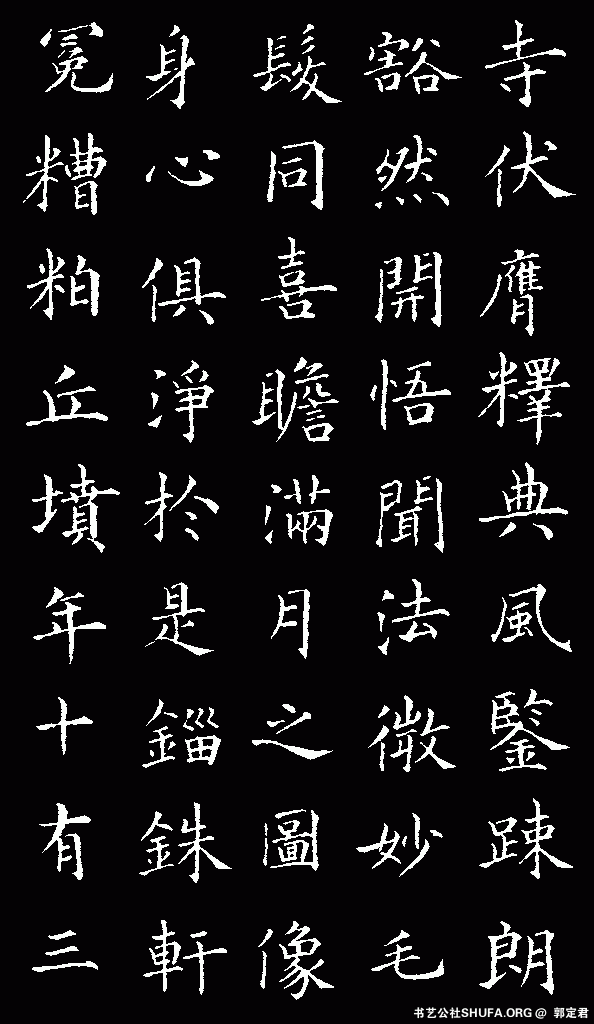 寺伏膺釋典風鑒踈朗
豁然開悟聞法微妙毛
髮同喜瞻滿月之圖像
身心俱淨於是錙銖軒
冕糟粕丘墳年十有三
书艺公社SHUFA.ORG @ 郭定君